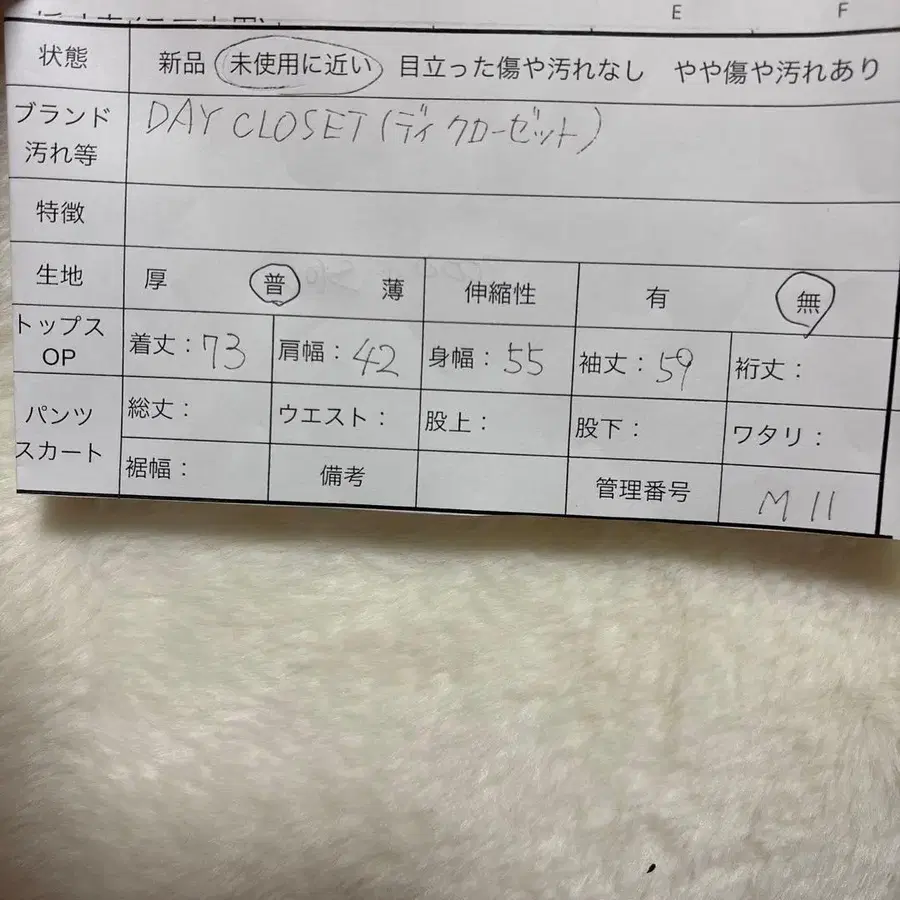 E F
状態 新品 未使用に近い 目立った傷や汚れなし やや傷や汚れあり
ブランド 汚れ等 DAY CLOSET (ディクローゼット)
特徴
生地 厚 普 薄 伸縮性 有 無
トップス OP 着丈：73 肩幅：42 身幅：55 袖丈：59 裄丈：
パンツ スカート 総丈： ウエスト： 股上： 股下： ワタリ：
裾幅： 備考 管理番号 M11